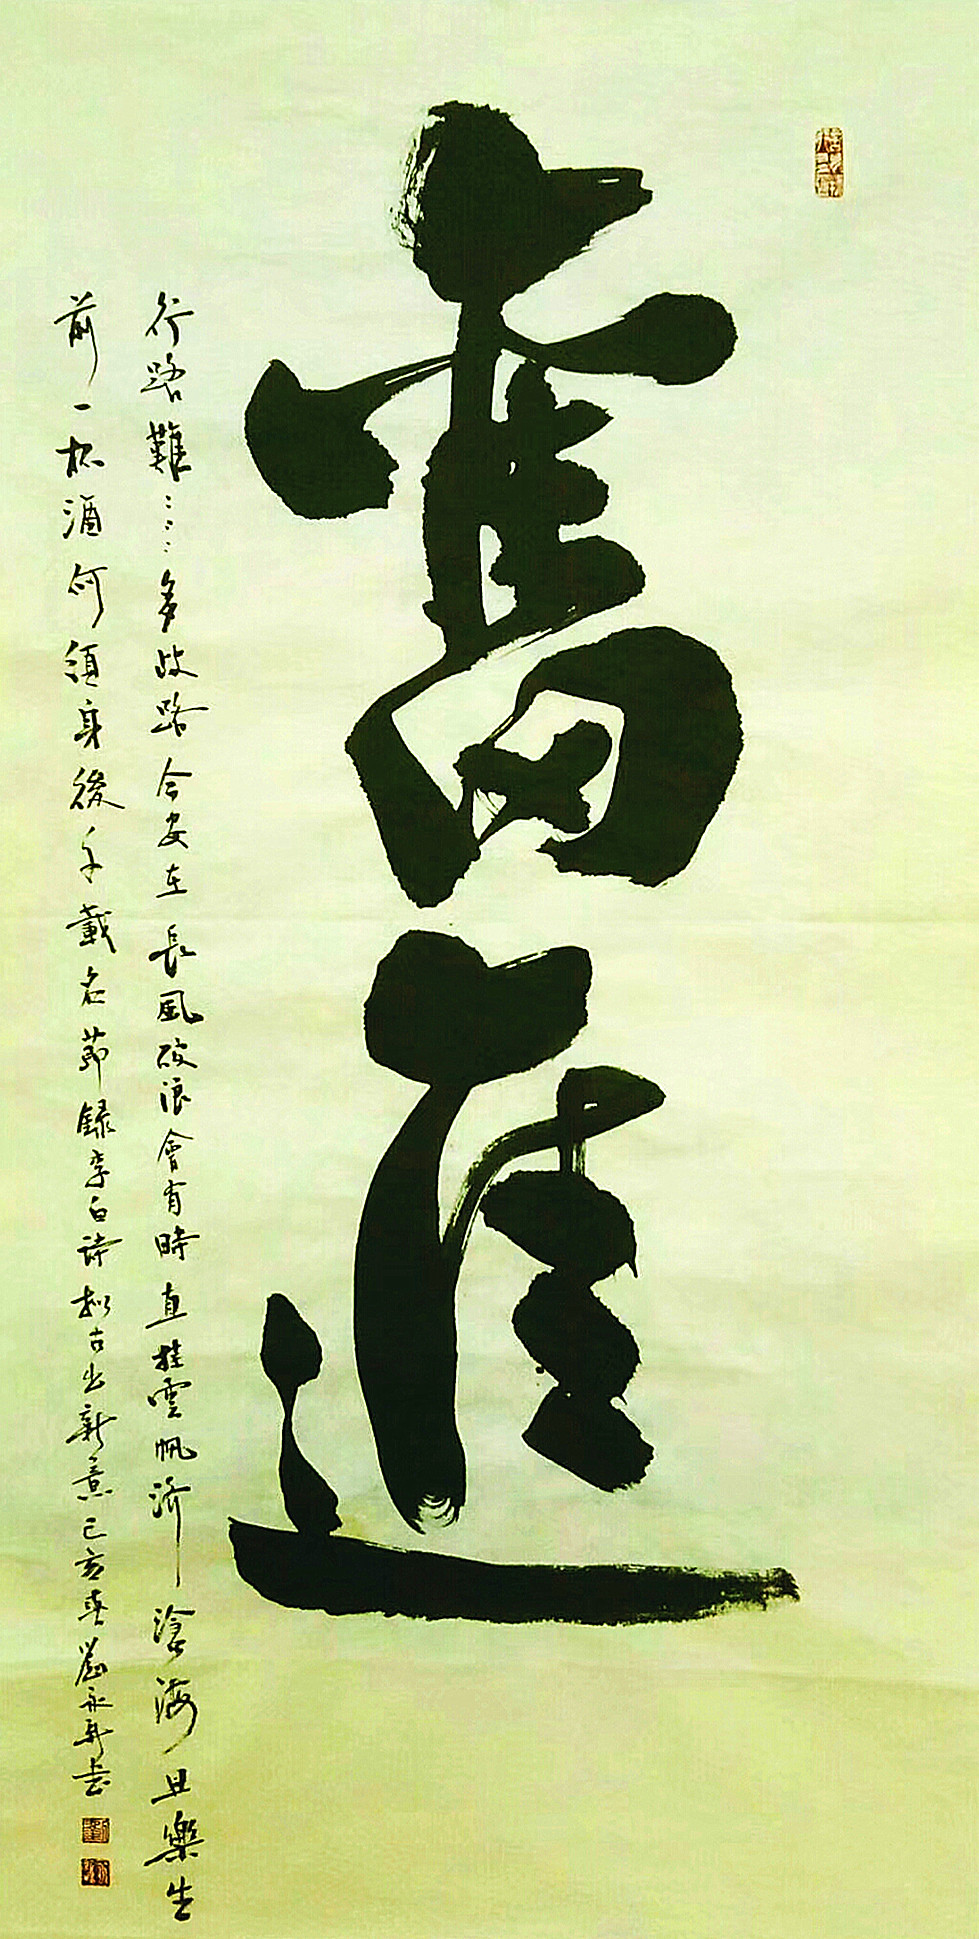 奮進
行路難……多歧路今安在長風破浪會有時直挂雲帆濟滄海且樂生
前一杯酒何須身後千載名節錄李白詩擬古出新意己亥春劉永